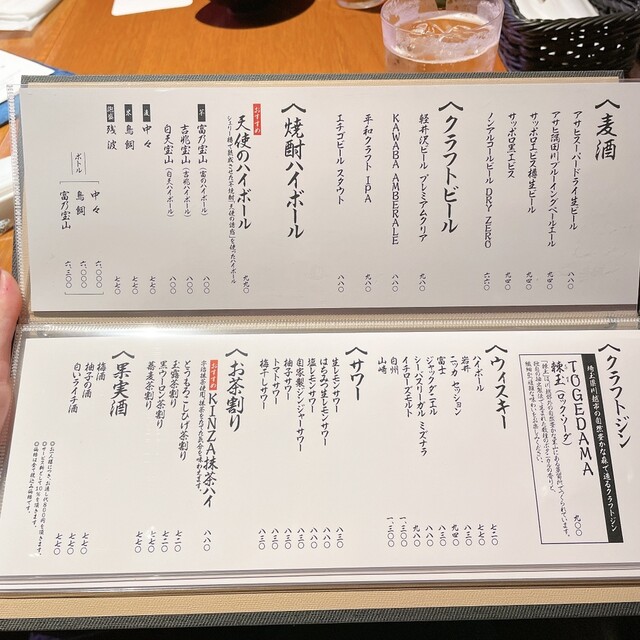 麦酒
アサヒスーパードライ生ビール 八八〇
アサヒ隅田川ブルーイングペールエール 九四〇
サッポロエビス樽生ビール 九四〇
サッポロ黒エビス 九四〇
ノンアルコールビール DRY ZERO 六六〇
クラフトビール
軽井沢ビール プレミアムクリア 九八〇
KAWABA AMBERALE 九八〇
平和クラフト IPA 九八〇
エチゴビール スタウト 八八〇
焼酎ハイボール
おすすめ
天使のハイボール 九九〇
シェリー樽で熟成させた芋焼酎「天使の誘惑」を使ったハイボール
芋 富乃宝山(富のハイボール) 八〇〇
吉兆宝山(吉兆ハイボール) 八〇〇
白天宝山(白天ハイボール) 八〇〇
麦 中々 七七〇
米 鳥飼 七七〇
残波 七七〇
ボトル
中々 六、〇〇〇
鳥飼 六、〇〇〇
富乃宝山 六、三〇〇
クラフトジン
埼玉県川越市の自然豊かな森で造るクラフトジン
TOGEDAMA
棘玉(ロック・ソーダ) 九〇〇
ウィスキー
ハイボール 七二〇
岩井 七七〇
ニッカ セッション 八三〇
富士 九四〇
ジャックダニエル 八三〇
シーバスリーガル ミズナラ 九八〇
イチローズモルト
白州 一、三〇〇
山崎 一、三〇〇
サワー
生レモンサワー 八三〇
はちみつ生レモンサワー 八八〇
塩レモンサワー 八八〇
自家製ジンジャーサワー 八八〇
柚子サワー 八三〇
トマトサワー 八三〇
梅干しサワー 八三〇
お茶割り
おすすめ
KINZA抹茶ハイ 八八〇
宇治抹茶使用。抹茶をたてた気分を味わえます。
とうもろこしひげ茶割り 七二〇
玉露茶割り 七二〇
黒ウーロン茶割り 七七〇
蕎麦茶割り 七七〇
果実酒
梅酒 七七〇
柚子の酒 七七〇
白いライチ酒 七七〇
◎お一人様につき、お通し代600円を頂きます。
◎サービス料として10%を頂きます。
◎価格は全て税込み価格です。